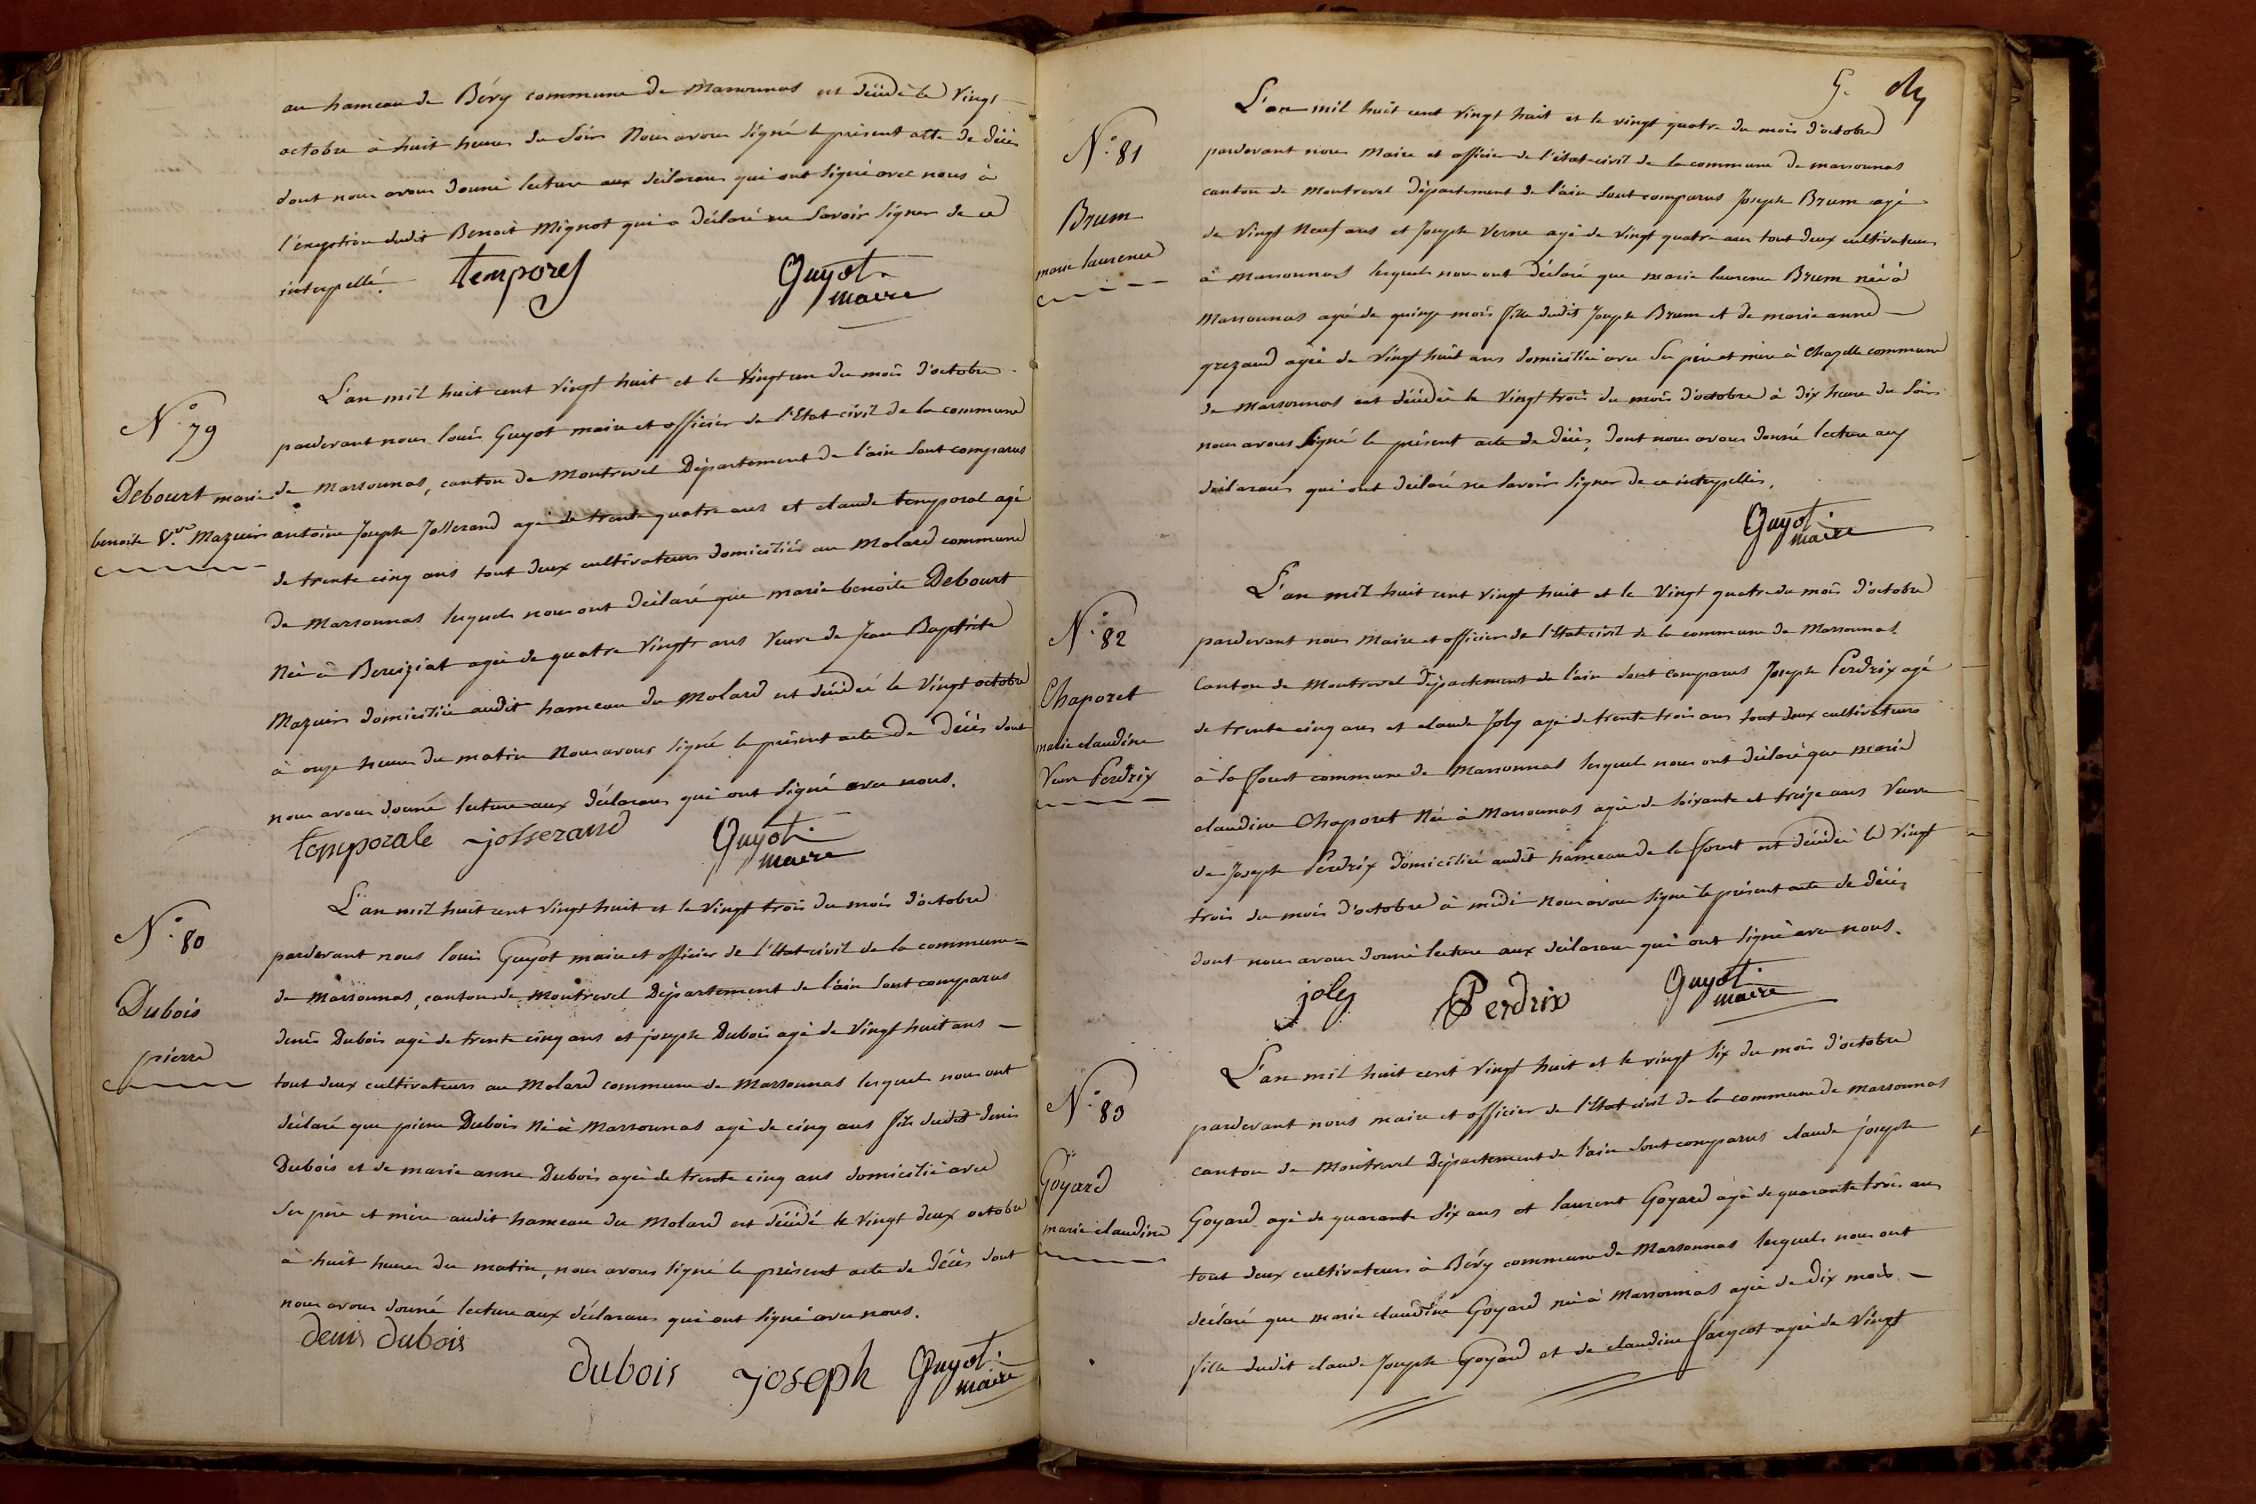 au hameau de Bévy commune de Marsonnas est décédé le Vingt
octobre à huit heures du Soir Nous avons Signé le présent acte de décès
dont nous avons donné lecture aux déclarans qui ont Signé avec nous à
l'éxeption dudit Benoit Mignot qui a déclaré ne Savoir Signer de ce
interpellé.
temporel Guyot maire
N° 79
Debourt marie
benoite Vve Mazuir
L'an mil huit cent vingt huit et le vingt un du mois d'octobre
pardevant nous louis Guyot maire et officier de l'Etat civil de la commune
de Marsonnas, canton de Montrevel Département de l'ain Sont comparus
antoine Joseph Josserand agé de trente quatre ans et claude temporal agé
de trente cinq ans tout deux cultivateurs domiciliés au Molard commune
de Marsonnas lesquels nous ont déclaré que marie benoite Debourt
Née à Bereiziat agée de quatre Vingts ans Veuve de Jean Baptiste
Mazuir domiciliée audit hameau du Molard est décédée le Vingt octobre
à onze heures du matin Nous avons signé le présent acte de décès dont
nous avons donné lecture aux déclarans qui ont Signé avec nous.
temporale josserand Guyot maire
N° 80
Dubois
pierre
L'an mil huit cent vingt huit et le vingt trois du mois d'octobre
pardevant nous louis Guyot maire et officier de l'Etat civil de la commune
de Marsonnas, canton de Montrevel Département de l'ain Sont comparus
denis Dubois agé de trente cinq ans et joseph Dubois agé de Vingt huit ans
tout deux cultivateurs au Molard commune de Marsonnas lesquels nous ont
déclaré que pierre Dubois Né à Marsonnas agé de cinq ans fils dudit denis
Dubois et de marie anne Dubois agée de trente cinq ans domicilié avec
Ses père et mère audit hameau du Molard est décédé le vingt deux octobre
à huit heures du matin, nous avons signé le présent acte de décès dont
nous avons donné lecture aux déclarans qui ont signé avec nous.
denis dubois
dubois joseph Guyot maire
N° 81
Brum
marie laurence
L'an mil huit cent vingt huit et le vingt quatre du mois d'octobre
pardevant nous Maire et officier de l'état civil de la commune de marsonnas
canton de Montrevel Département de l'ain Sont comparus Joseph Brum agé
de vingt Neuf ans et Joseph Verne agé de vingt quatre ans tout deux cultivateurs
à Marsonnas lesquels nous ont déclaré que marie laurence Brum née à
Marsonnas agée de quinze mois fille dudit Joseph Brum et de marie anne
grezaud agée de vingt huit ans domiciliée avec Ses père et mère à Chazelle commune
de Marsonnas est décédée le vingt trois du mois d'octobre à dix heures du Soir
nous avons Signé le présent acte de décès, dont nous avons donné lecture aux
déclarans qui ont déclaré ne savoir signer de ce interpellés.
Guyot maire
N° 82
Chaporet
marie claudine
Veuve Perdrix
L'an mil huit cent vingt huit et le Vingt quatre du mois d'octobre
pardevant nous Maire et officier de l'Etat civil de la commune de Marsonnas
Canton de Montrevel Département de l'ain Sont comparus Joseph Perdrix agé
de trente cinq ans et claude Joly agé de trente trois ans tout deux cultivateurs
à la forest commune de Marsonnas lesquels nous ont déclaré que marie
claudine Chaporet Née à Marsonnas agée de Soixante et treize ans Veuve
de Joseph Perdrix domiciliée audit hameau de la forest est décédée le Vingt
trois du mois d'octobre à midi nous avons Signé le présent acte de décès
dont nous avons donné lecture aux déclarans qui ont Signé avec nous.
joly Perdrix Guyot maire
N° 83
Goyard
marie claudine
L'an mil huit cent vingt huit et le vingt six du mois d'octobre
pardevant nous maire et officier de l'Etat civil de la commune de marsonnas
canton de Montrevel Département de l'ain Sont comparus claude joseph
Goyard agé de quarante six ans et laurent Goyard agé de quarante trois ans
tout deux cultivateurs à Bévy commune de Marsonnas lesquels nous ont
déclaré que marie claudine Goyard née à Marsonnas agée de dix mois
fille dudit claude Joseph Goyard et de claudine agée de Vingt